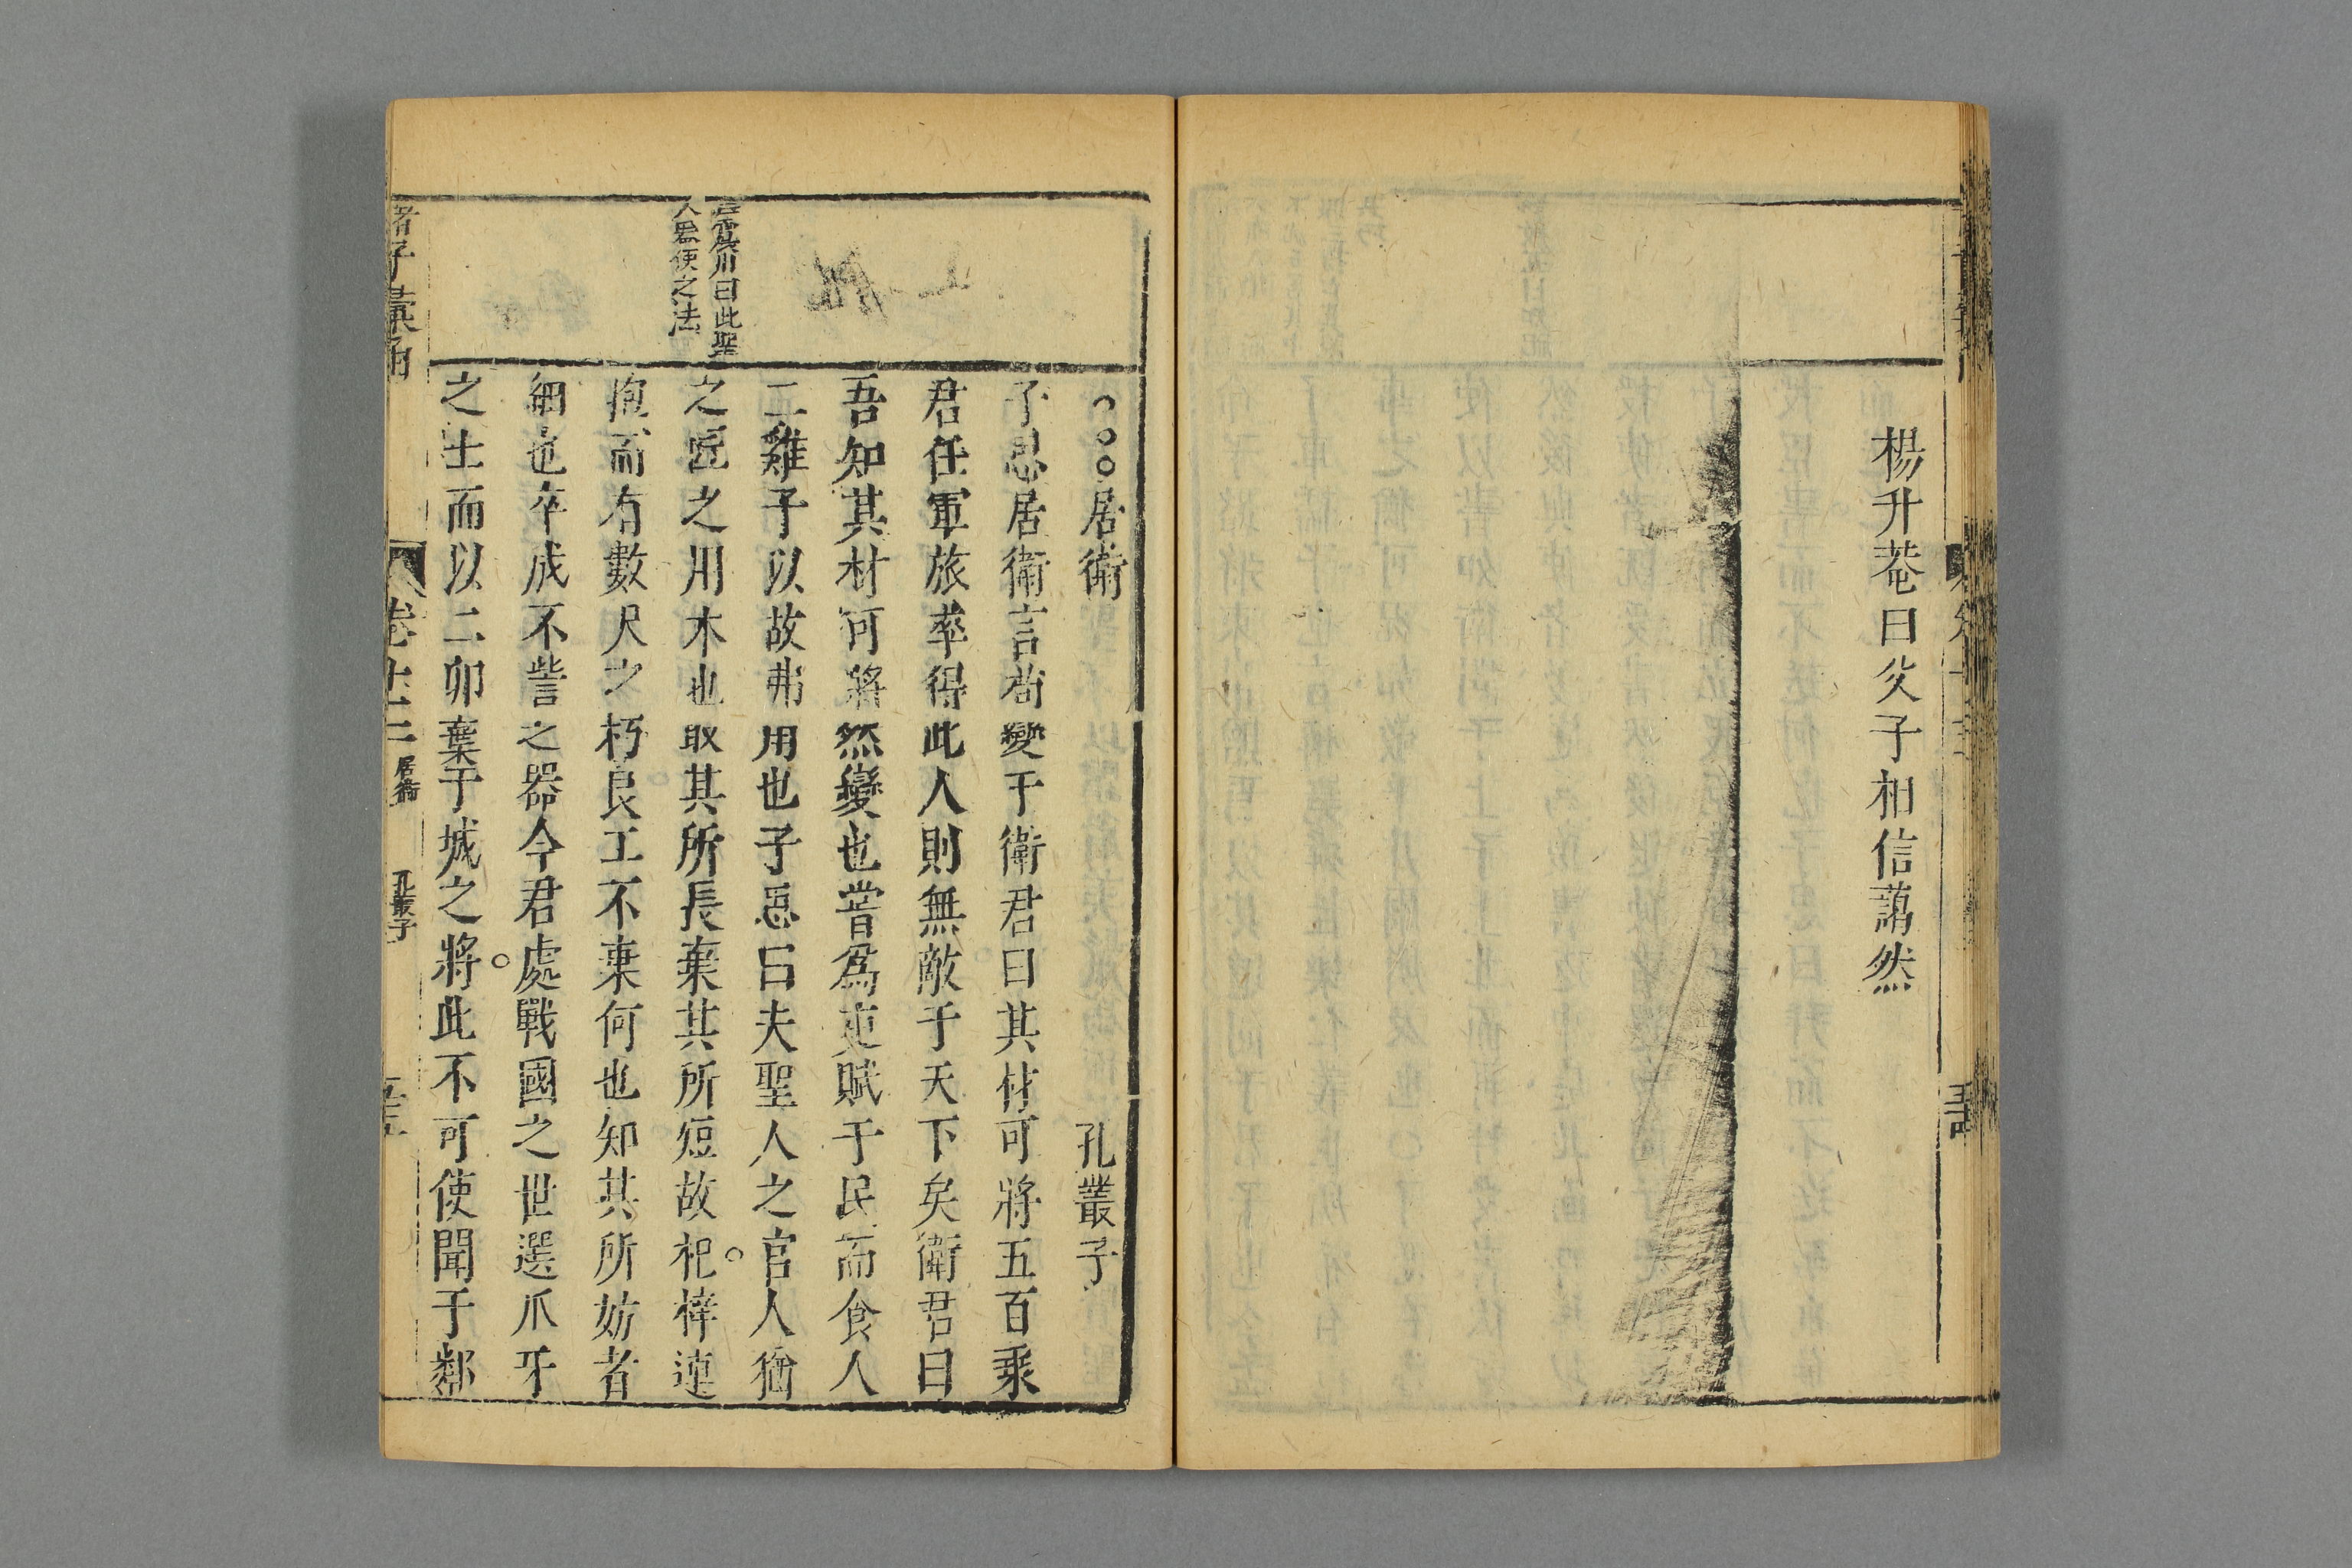 楊升菴曰父子相信藹然
居衛
孔叢子
子思居衛言苟變于衛君曰其材可將五百乘
君任軍旅率得此人則無敵于天下矣衛君曰
吾知其材可將然變也嘗爲吏賦于民而食人
二雞子以故弗用也子思曰夫聖人之官人猶
之匠之用木也取其所長棄其所短故杞梓連
抱而有數尺之朽良工不棄何也知其所妨者
細也卒成不訾之器今君處戰國之世選爪牙
之士而以二卵棄干城之將此不可使聞于鄰
川曰此聖
人器使之法
諸子彙函
卷十二
居衛
孔叢子